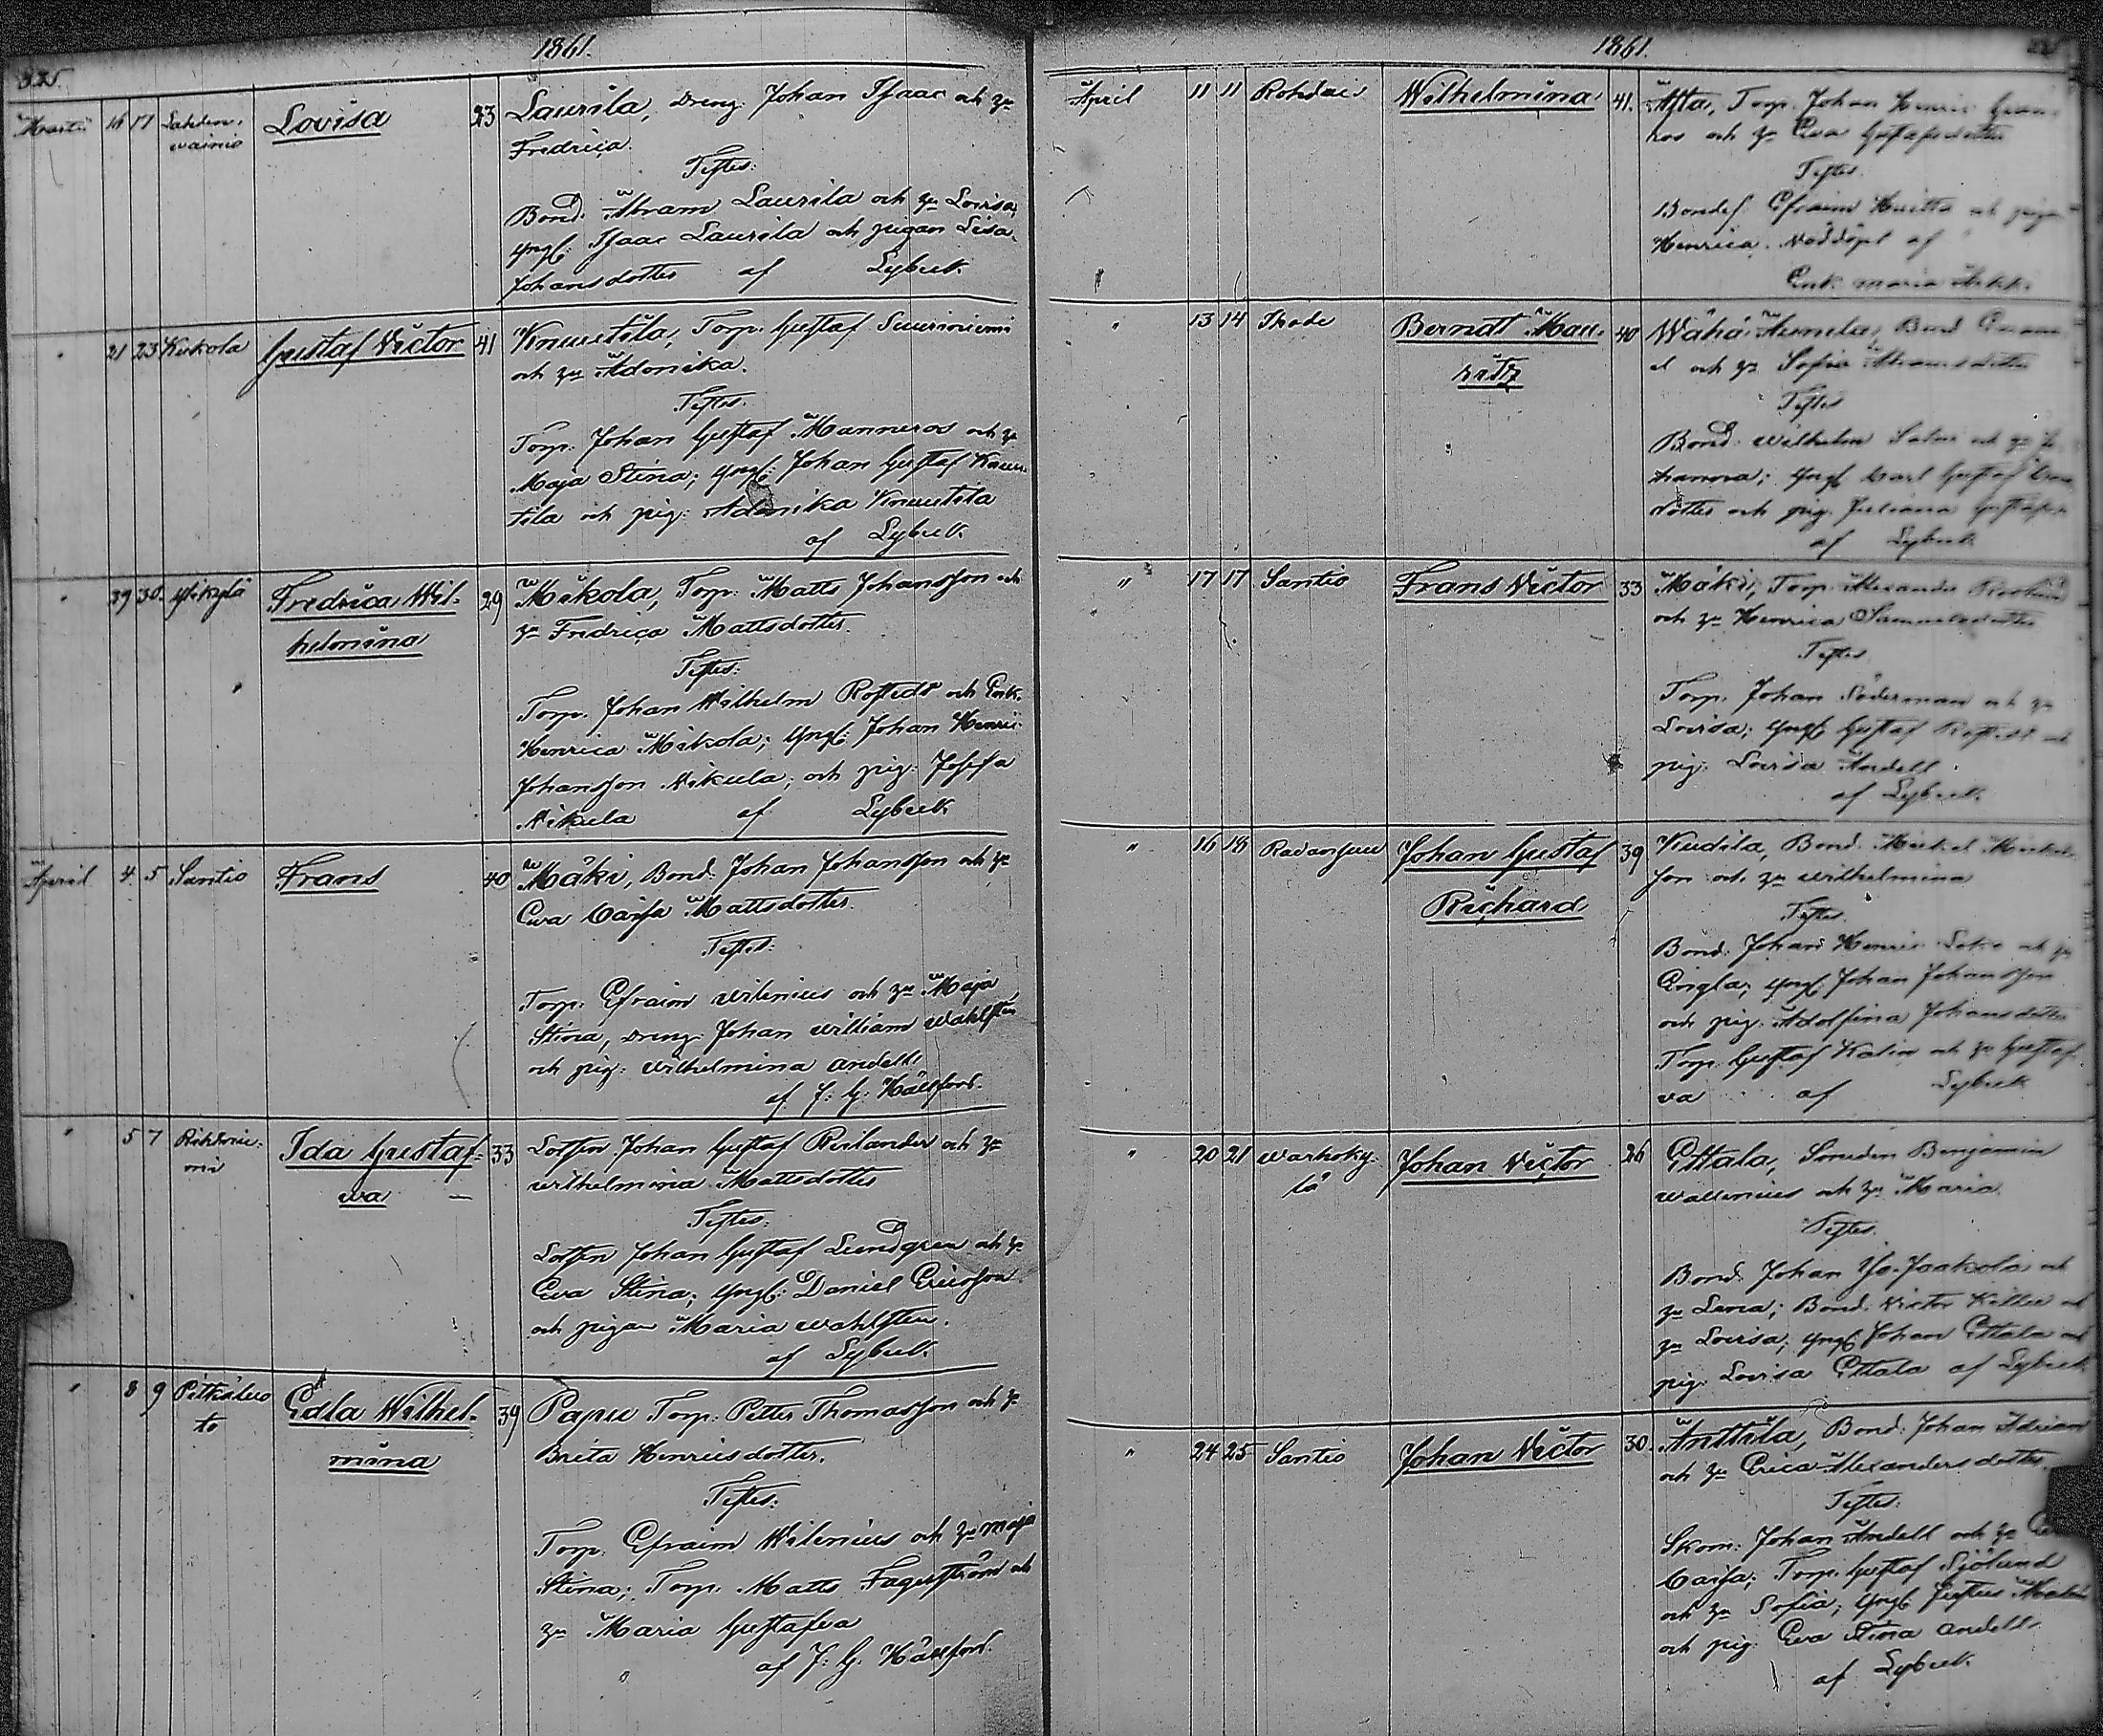 1861.
335.
Martii 16 17 Lahden-
wainio
Lovisa
23
Laurila, Dreng. Johan Isaac och h:u
Fredrica.
Testes:
Bond. Abram Laurila och h:u Lovisa,
yngl: Isaac Laurila och pigan Lisa
Johansdotter af Lybeck.
" 21 23 Kukola
Gustaf Victor
41
Knuutila, Torp. Gustaf Suuriniemi
och h:u Adonika.
Testes.
Torp. Johan Gustaf Manneros och h:u
Maja Stina; yngl: Johan Gustaf Knuu-
tila och pig: Adonika Knuutila
af Lybeck.
" 29 30 Ylikylä
Fredrica Wil-
helmina
29
Mikola, Torp: Matts Johansson och
h:u Fredrica Mattsdotter.
Testes:
Torp. Johan Wilhelm Rostedt och Enk.
Henrica Mikola; yngl: Johan Henric
Johansson Nikula; och pig: Josefa
Nikula af Lybeck
April 4 5 Santio
Frans
40
Mäki, Bond. Johan Johansson och h:u
Ewa Caisa Mattsdotter.
Testes:
Torp: Efraim Wilenius och h:u Maja
Stina, Dreng: Johan William Wahlstén
och pig: Wilhelmina Andell.
af J: G: Hällfors.
" 5 7
mi
Ida Gustaf-
wa
33
Lotsen Johan Gustaf Reilander och h:u
Wilhelmina Mattsdotter
Testes:
Lotsen Johan Gustaf Lundgren och h:u
Ewa Stina; yngl: Daniel Ericsson
och pigan Maria Wahlsten.
af Lybeck.
" 8 9 Pitkäluo
to
Edla Wilhel-
mina
39
Papu Torp: Petter Thomasson och h:u
Brita Henricsdotter.
Testes:
Torp. Efraim Wilenius och h:u Maja
Stina; Torp. Matts Fagerström och
h:u Maria Gustafva
af J: G: Hällfors.
1861.
April 11 11 Rohdais
Wilhelmina
41.
Torp. Johan Henric Gran-
ros och h:u Ewa Gustafsdotter
Testes.
Bondes. Efraim Huitta och pigan
Henrica. Nöddöpt af
Enk. Maria
" 13 14
Berndt Mau-
ritz
40
Wähä Bond
och h:u Sofia Abramsdotter
Testes
Bond. Wilhelm och h:u Jo-
hanna; yngl Carl Gustaf
och pig. Juliana Gustafs-
af Lybeck
" 17 17 Santio
Frans Victor
33
Mäki, Torp. Alexander
och h:u Henrica Samuelsdotter
Testes
Torp. Johan Söderman och h:u
Lovisa; yngl Gustaf Rostedt och
pig: Lovisa Andell.
af Lybeck.
" 16 18
Johan Gustaf
Richard
39
Bond. Mickel Mickels-
son och h:u Wilhelmina
Testes.
Bond. Johan Henric och h:u
Engla; yngl. Johan Johansson
och pig. Adolfina Johansdotter
Torp. Gustaf Kalin och h:u Gustaf-
va af Lybeck
" 20 21 Warhoky-
lä
Johan Victor
26
Ettala, Smeden Benjamin
Wallenius och h:u Maria.
Testes.
Bond. Johan Yli-Jaakola och
h:u Lena; Bond. Victor och
h:u Lovisa; yngl Johan Ettala och
pig. Lovisa Ettala af Lybeck
" 24 25 Santio
Johan Victor
30.
Anttila, Bond. Johan Adrian
och h:u Erica Alexandersdotter.
Testes.
Skom: Johan Andell och h:u
Caisa; Torp. Gustaf Sjölund
och h:u Sofia; yngl. Justus
och pig. Ewa Stina Andell.
af Lybeck.